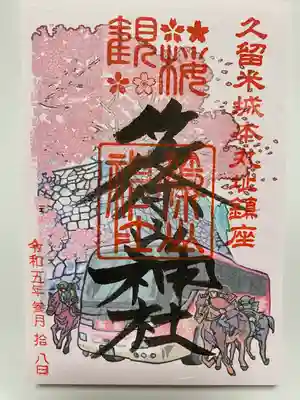 久留米城本丸址鎮座
観桜
篠山神社
篠山神社
令和五年参月拾八日